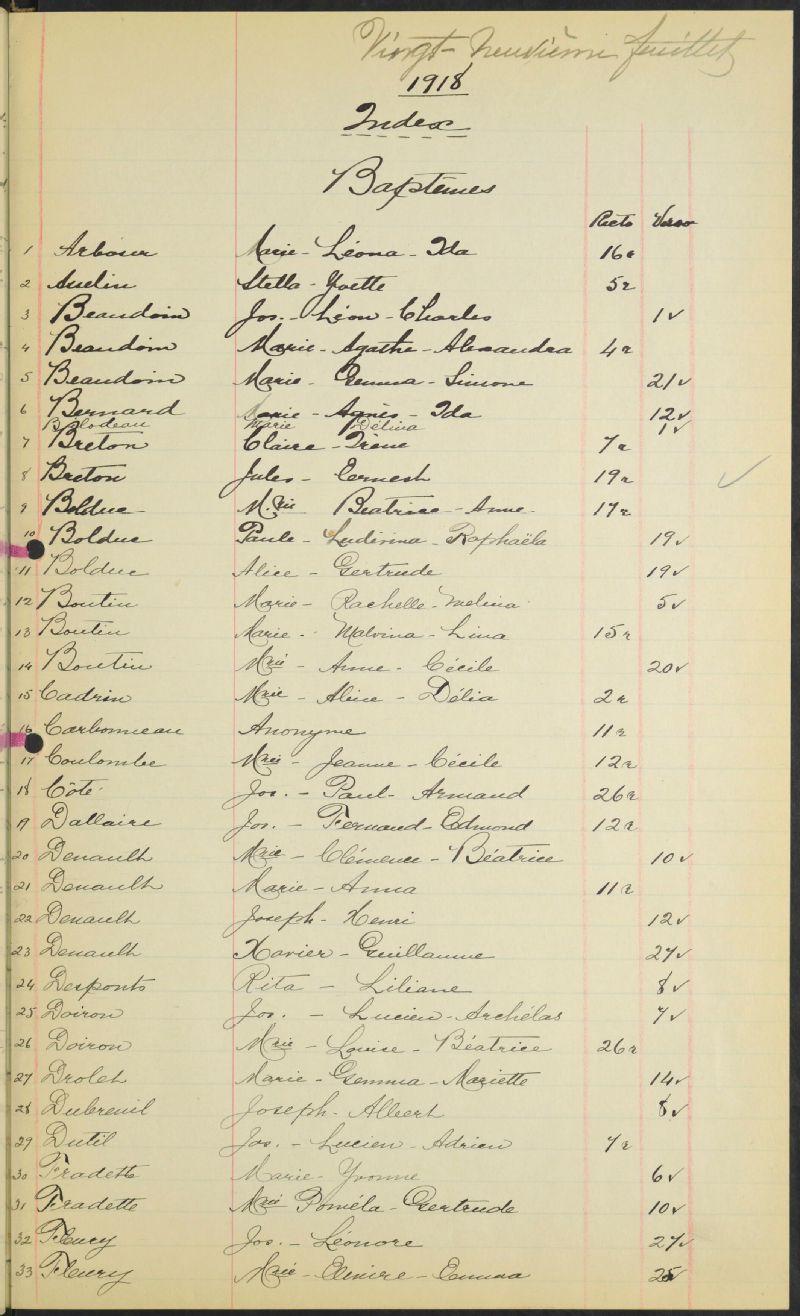 Vingt-Neuvième feuillet
1918
Index
Baptêmes
Recto Verso
1 Arbour Marie - Léona - Ida 16r
2 Audin Stella - Yvette 5r
3 Beaudoin Jos. - Léon - Charles 1v
4 Beaudoin Marie - Agathe - Alexandra 4r
5 Beaudoin Marie - Gemma - Simone 21v
6 Bernard Marie - Agnès - Ida 12v
Bilodeau Marie Délina 1v
7 Breton Claire - Irène 7r
8 Breton Jules - Ernest 19r
9 Bolduc M.rie Beatrice - Anne 17r
10 Bolduc Paule - Ludivina - Raphaëla 19v
11 Bolduc Alice - Gertrude 19v
12 Boutin Marie - Rachelle - Melina 5v
13 Boutin Marie - Malvina - Lina 15r
14 Boutin Mrie - Anne - Cécile 20v
15 Cadrin Mrie - Alice - Délia 2r
16 Carbonneau Anonyme 11r
17 Coulombe Mrie - Jeanne - Cécile 12r
18 Côté Jos. - Paul - Armand 26r
19 Dallaire Jos. - Fernand - Edmond 12r
20 Denault Mrie - Clémence - Béatrice 10v
21 Denault Marie - Anna 11r
22 Denault Joseph - Henri 12v
23 Denault Xavier - Guillaume 27v
24 Desponts Rita - Liliane 8v
25 Doiron Jos. - Lucien - Archélas 7v
26 Doiron Mrie - Louise - Béatrice 26r
27 Drolet Marie - Gemma - Mariette 14v
28 Dubreuil Joseph - Albert 8v
29 Dutil Jos. - Lucien - Adrien 7r
30 Fradette Marie - Yvonne 6v
31 Fradette Mrie Poméla - Gertrude 10v
32 Fleury Jos. - Léonore 27v
33 Fleury Mrie - Elmire - Emma